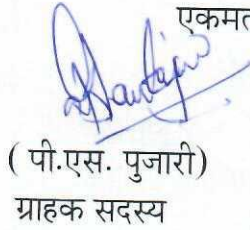 एकमत
( पी.एस. पुजारी)
ग्राहक सदस्य